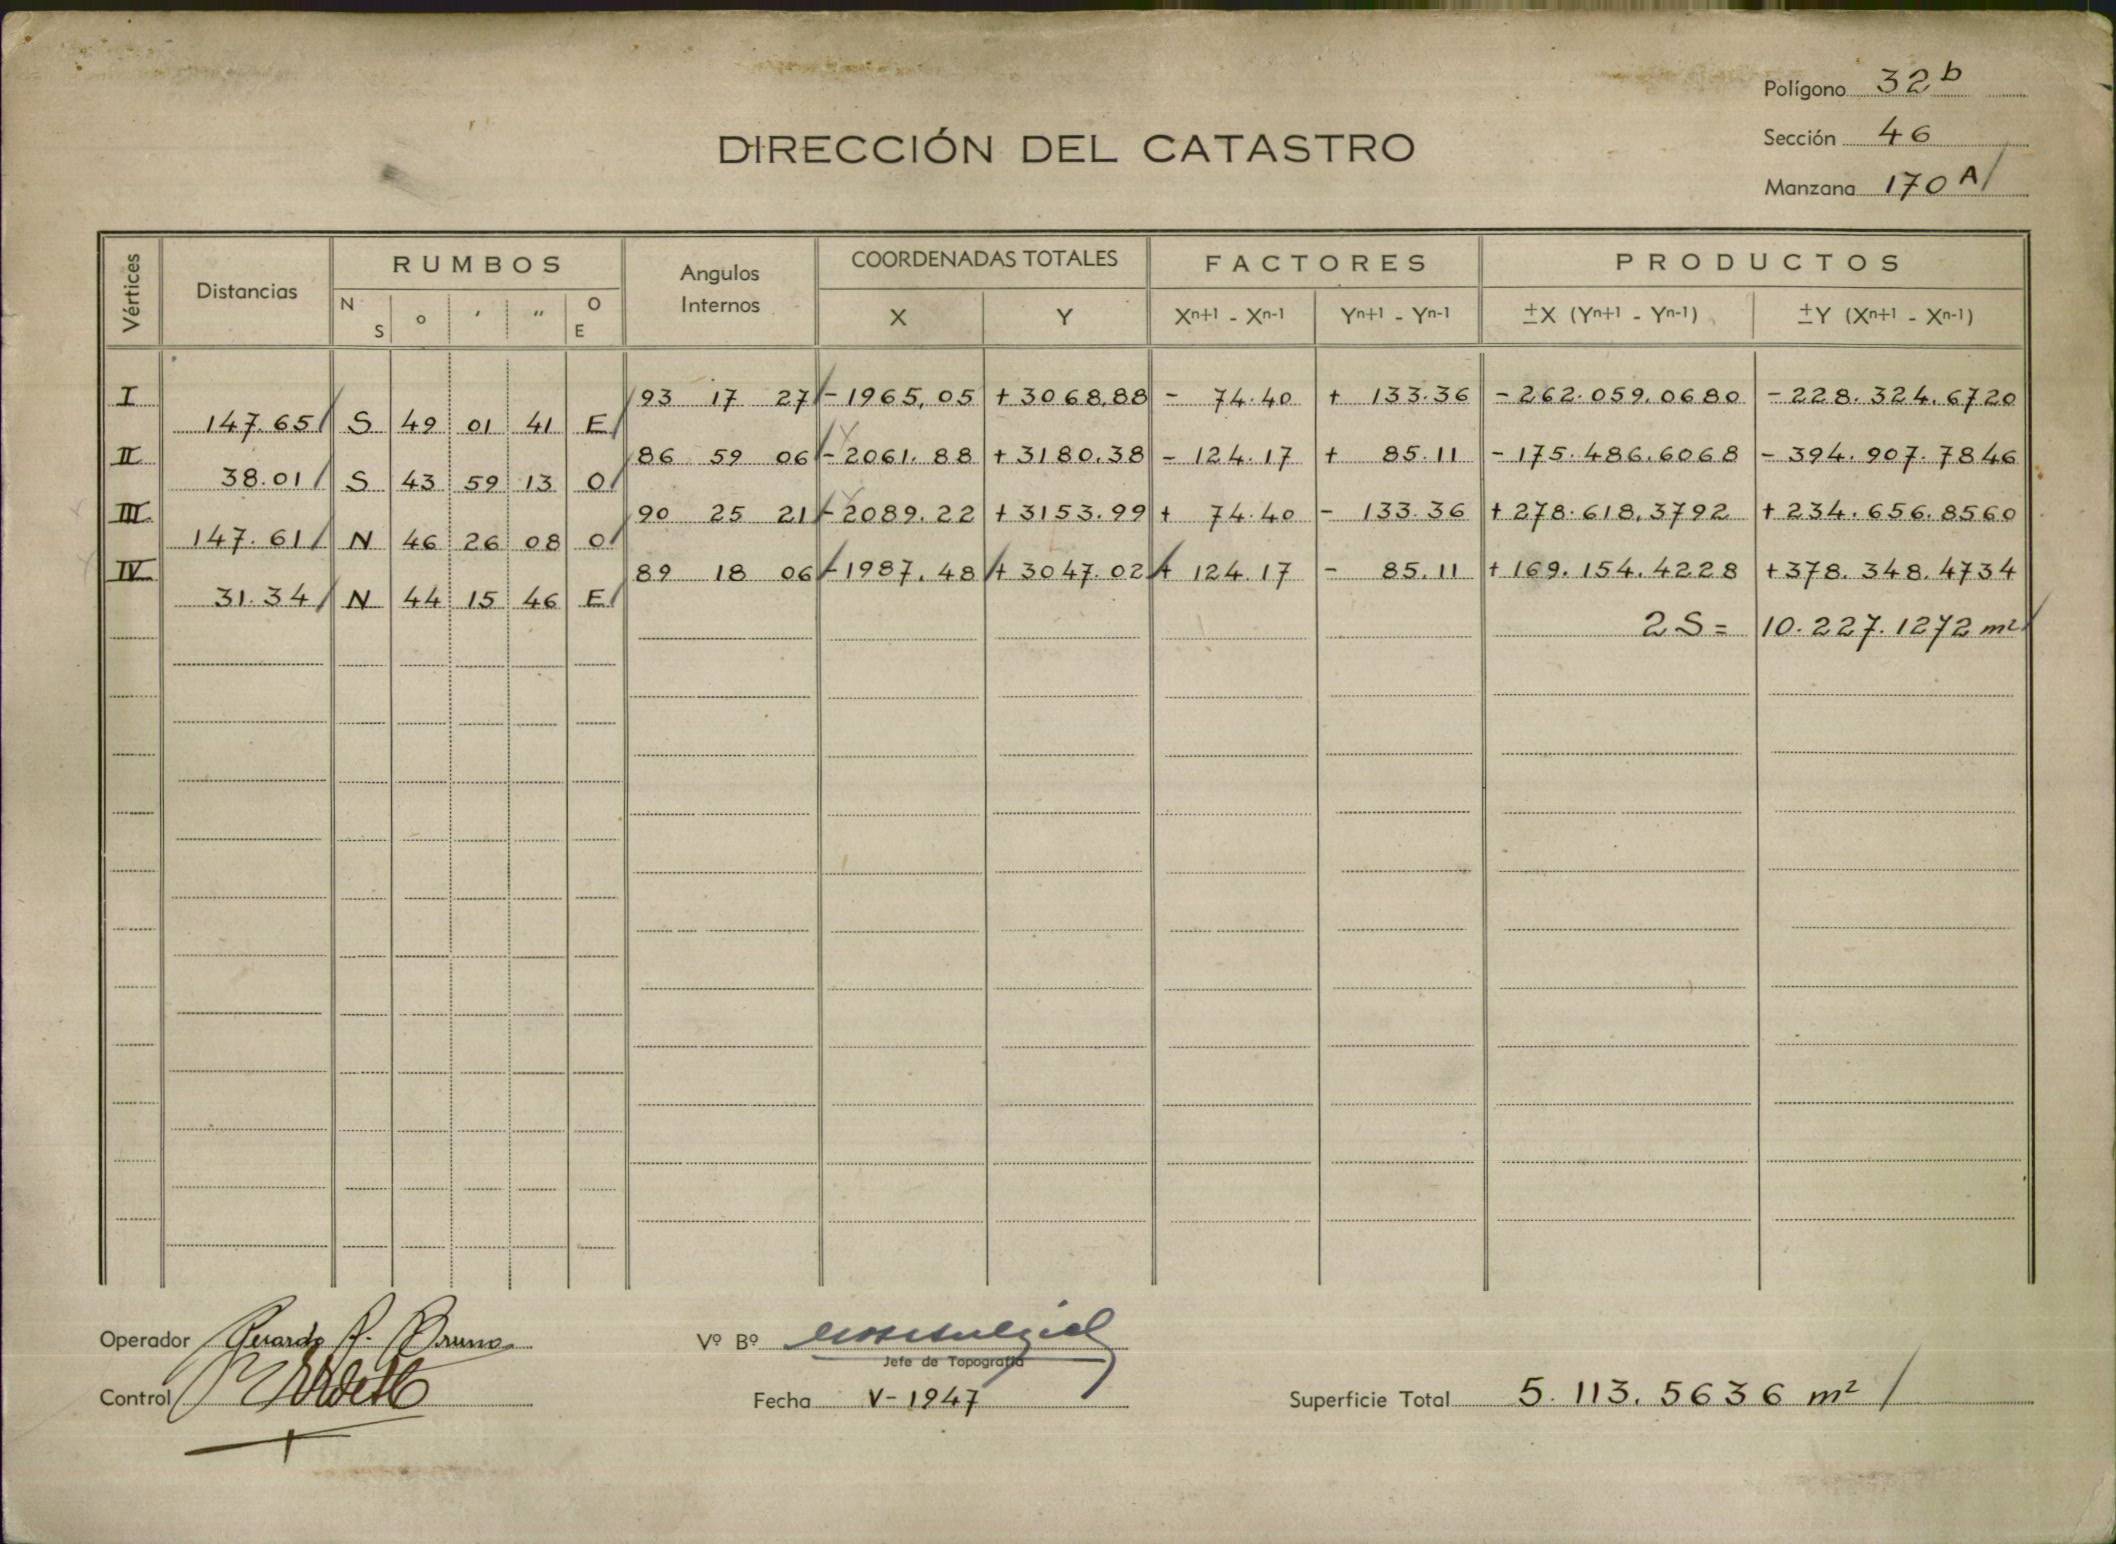 Polígono 32 b
DIRECCIÓN DEL CATASTRO
Sección 46
Manzana 170 A/
Vértices Distancias RUMBOS Angulos Internos COORDENADAS TOTALES FACTORES PRODUCTOS
N S o ' " O E X Y Xn+1 - Xn-1 Yn+1 - Yn-1 ±X (Yn+1 - Yn-1) ±Y (Xn+1 - Xn-1)
I 93 17 27 - 1965,05 + 3068,88 - 74.40 + 133.36 - 262.059,0680 - 228.324,6720
147.65 S 49 01 41 E
II 86 59 06 - 2061.88 + 3180.38 - 124.17 + 85.11 - 175.486,6068 - 394.907.7846
38.01 S 43 59 13 O
III 90 25 21 - 2089.22 + 3153.99 + 74.40 - 133.36 + 278.618,3792 + 234.656.8560
147.61 N 46 26 08 O
IV 89 18 06 - 1987.48 + 3047.02 + 124.17 - 85.11 + 169.154.4228 + 378.348.4734
31.34 N 44 15 46 E
2 S = 10.227.1272 m²
Operador Gerardo A. Bruno
Vº Bº
Jefe de Topografía
Control
Fecha V - 1947
Superficie Total 5.113.5636 m²